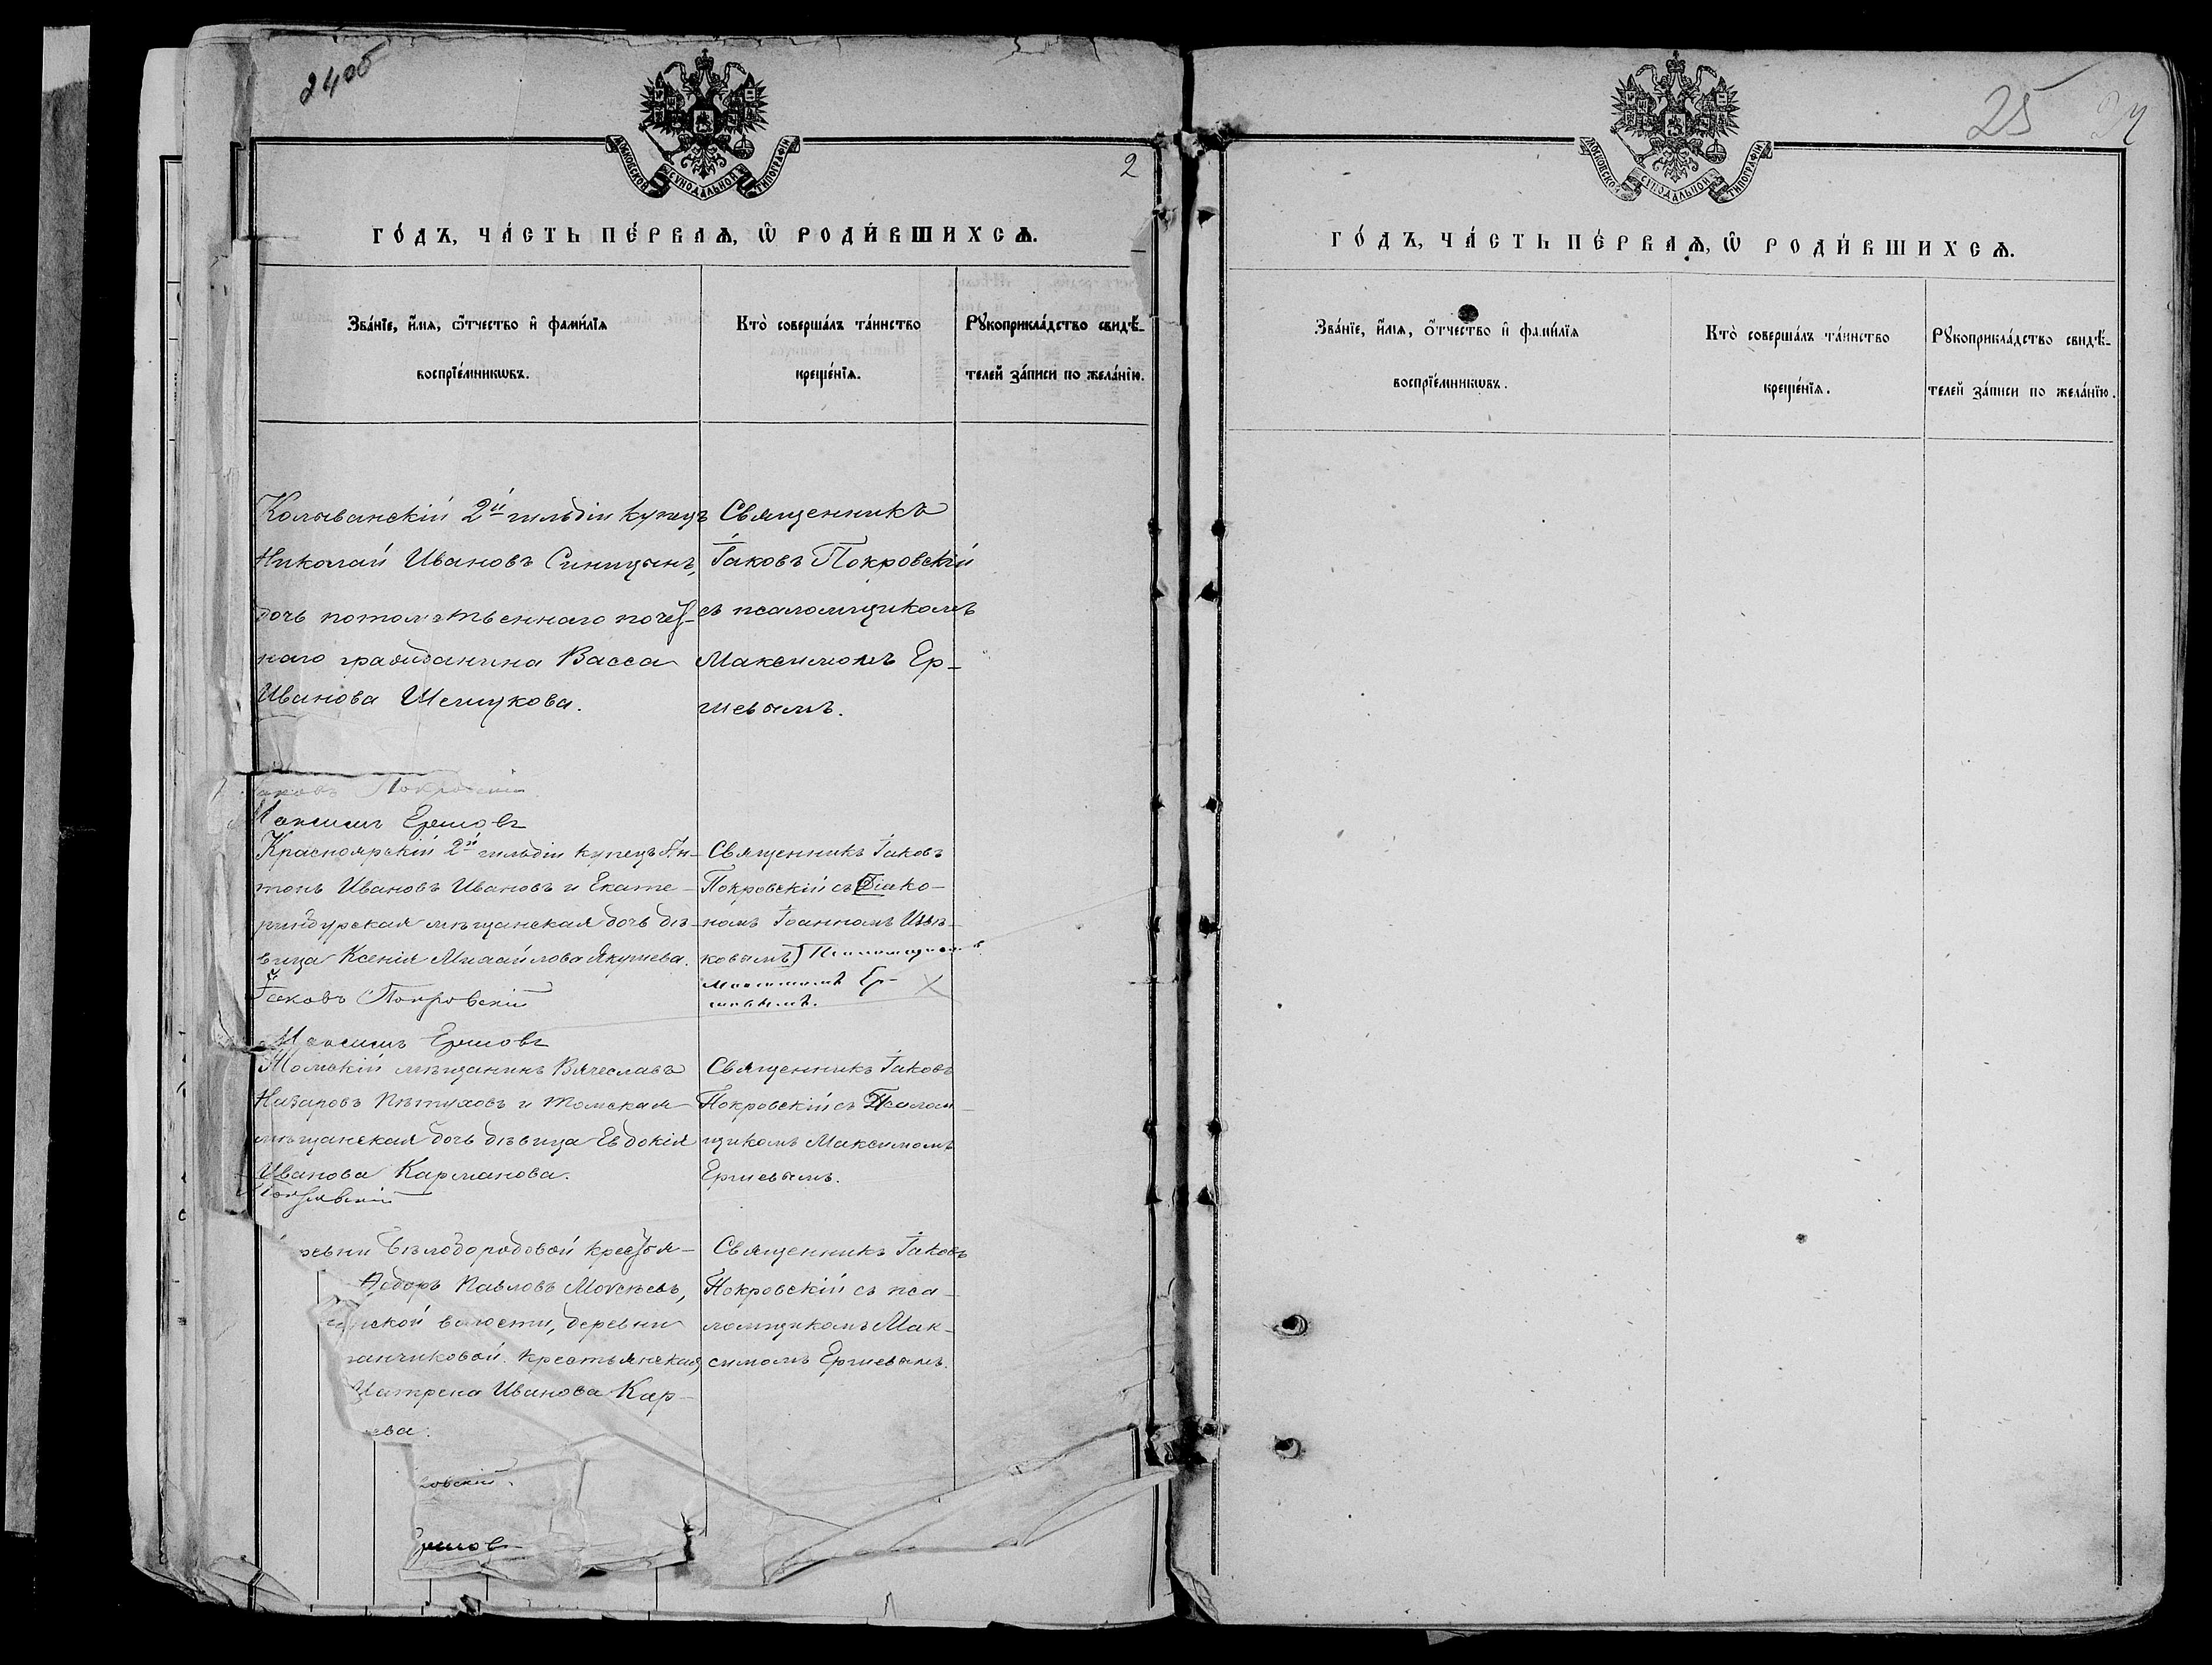 24об
МОСКОВСКОЙ СѴНОДАЛЬНОЙ ТИПОГРАФІИ
2
ГО́ДЪ, ЧА́СТЬ ПЕ́РВАѦ, Ѽ РОДИ́ВШИХСѦ.
Зва́нїе, и҆́мѧ, ѻ҆́тчество и҆ фами́лїѧ
воспрїе́мникѡвъ.
Кто̀ соверша́лъ та́инство
креще́нїѧ.
Рꙋкоприкла́дство свидѣ́-
телей за́писи по жела́нїю.
Колыванскій 2й гильдіи купецъ
Николай Ивановъ Синицынъ,
дочь потомственнаго почет-
наго гражданина Васса
Иванова Шемукова.
Священникъ
Іаковъ Покровскій
съ псаломщикомъ
Максимомъ Ер-
шевымъ.
Іаковъ Покровскій
Максимъ Ершовъ
Красноярскій 2й гильдіи купецъ Ан-
тонъ Ивановъ Ивановъ и Екате-
ринбурская мѣщанская дочь дѣ-
вица Ксенія Михайлова Якушева.
Священникъ Іаковъ
Покровскій съ Діако-
номъ Іоанномъ Ивѣ-
ковымъ) Псаломщикомъ
Максимомъ Ер-
шовымъ.
Іаковъ Покровскій
Максимъ Ершовъ
Томскій мѣщанинъ Вячеславъ
Назаровъ Пѣтуховъ и томская
мѣщанская дочь дѣвица Евдокія
Иванова Карманова.
Священникъ Іаковъ
Покровскій съ Псалом-
щикомъ Максимомъ
Ершевымъ.
Покровскій
ревни Бѣлобородовой крестья-
Ѳедоръ Павловъ Моѵсѣевъ,
ской волости, деревни
анчиковой крестьянская
Матрена Иванова Кар-
ева.
Священникъ Іаковъ
Покровскій съ пса-
ломщикомъ Мак-
симомъ Ершевымъ.
овскій.
Ершов
25 24
МОСКОВСКОЙ СѴНОДАЛЬНОЙ ТИПОГРАФІИ
ГО́ДЪ, ЧА́СТЬ ПЕ́РВАѦ, Ѽ РОДИ́ВШИХСѦ.
Зва́нїе, и҆́мѧ, ѻ҆́тчество и҆ фами́лїѧ
воспрїе́мникѡвъ.
Кто̀ соверша́лъ та́инство
креще́нїѧ.
Рꙋкоприкла́дство свидѣ́-
телей за́писи по жела́нїю.